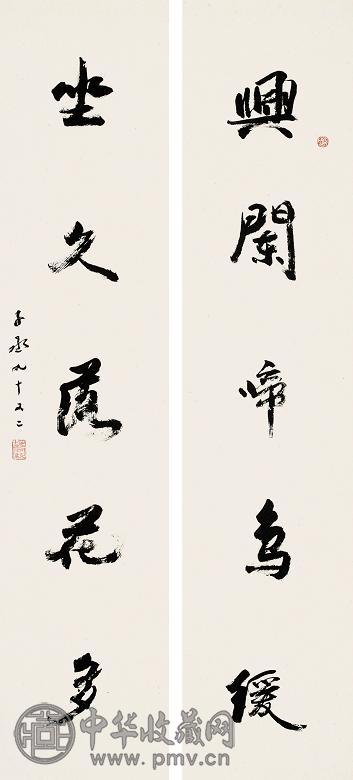 興闌啼鳥緩
坐久落花多
子丞九十又二
中华收藏网
www.pmv.cn